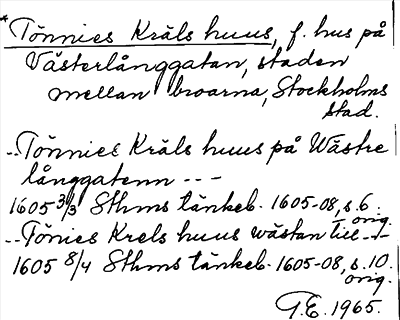 *Tönnies Kräls huus, f. hus på
Västerlånggatan, staden
mellan broarna, Stockholms
stad.
--Tönnies Kräls huus på Wästre
långgatenn ---
1605 3/3 Sthms tänkeb. 1605-08, s. 6.
orig.
--Tönies Krels huus wästan till---
1605 8/4 Sthms tänkeb. 1605-08, s. 10.
orig.
G.E. 1965.